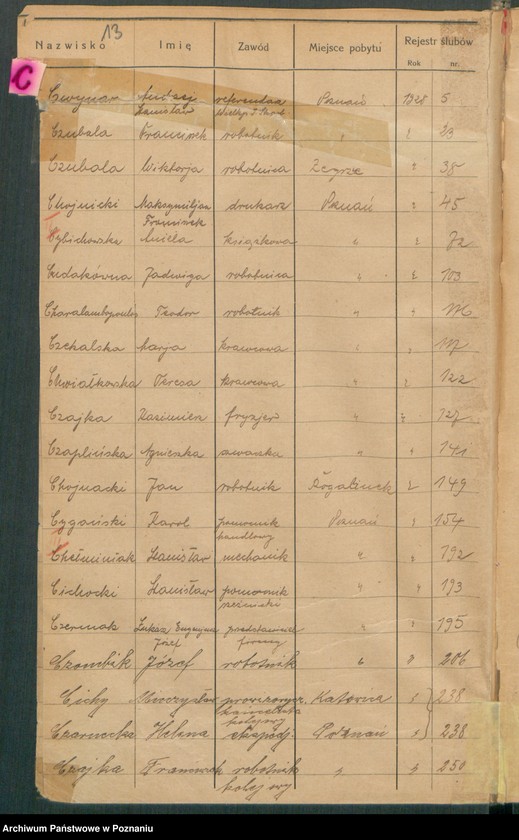 13
Nazwisko Imię Zawód Miejsce pobytu Rejestr ślubów
Rok nr.
C
Cwynar Andrzej referendarz Poznań 1928 5
Stanisław
Czubala Franciszek robotnik " " 23
Czubala Wiktorja robotnica " 38
Chojnicki Maksymiljan drukarz Poznań " 45
Franciszek
Cybichowska Aniela " " 72
Cudakówna Jadwiga robotnica " " 103
Teodor robotnik " "
Czekalska Marja krawcowa " " 117
Chwiałkowska Teresa krawcowa " " 122
Czajka Kazimierz fryzjer " " 127
Czaplińska Agnieszka " " 141
Chojnacki Jan robotnik Rogalinek " 149
Cygański Karol pomocnik Poznań " 154
handlowy
Chełminiak Stanisław mechanik " " 192
Cichocki Stanisław pomocnik " " 193
rzeźnicki
Czermak Łukasz Eugenjusz przedstawiciel " " 195
Józef firmy
Czombik Józef robotnik " " 206
Cichy Mieczysław Katowice " 238
kolejowy
Czarnecka Helena ekspedj. Poznań " 238
Czajka Franciszek robotnik " " 250
kolejowy
Archiwum Państwowe w Poznaniu